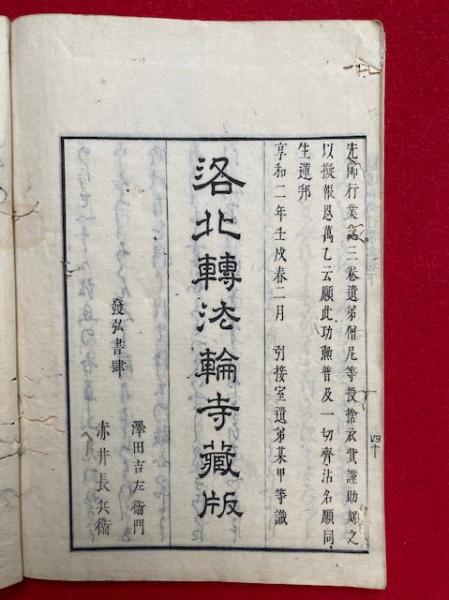 先師行業記三卷遺弟僧尼等投捨衣資謹助刻之
以擬報恩萬乙云願此功勲普及一切齊沾名願同
生蓮邦
享和二年壬戌春二月 引接室遺弟某甲等識
洛北轉法輪寺藏版
發弘書肆
澤田吉左衛門
赤井長兵衛
四十